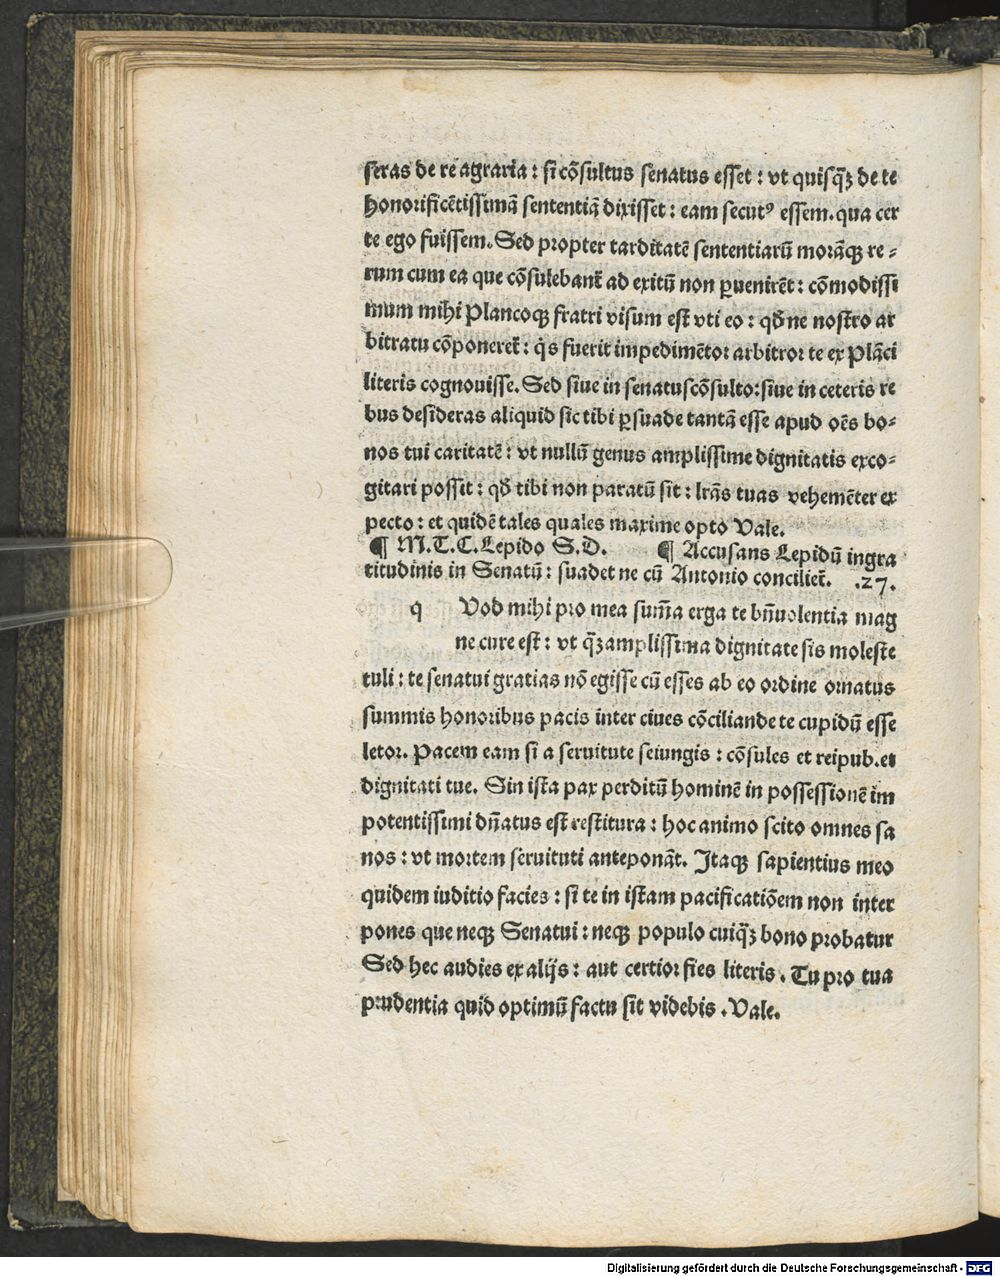 seras de re agraria : si cõsultus senatus esset : vt quisq̃ʒ de te
honorificẽtissimã sententiã dixisset : eam secutꝰ essem. qua cer
te ego fuissem. Sed propter tarditatẽ sententiarũ morãqʒ re⸗
rum cum ea que cõsulebant᷑ ad exitũ non ꝑuenirẽt : cõmodissi
mum mihi Plancoqʒ fratri visum est vti eo : qđ ne nostro ar
bitratu cõponeret᷑ : q̇s fuerit impedimẽto: arbitror te ex Plãci
literis cognouisse. Sed siue in senatuscõsulto: siue in ceteris re
bus desideras aliquid sic tibi ꝑsuade tantã esse apud oẽs bo⸗
nos tui caritatẽ : vt nullũ genus amplissime dignitatis exco⸗
gitari possit : qđ tibi non paratũ sit : lr̃as tuas vehemẽter ex
pecto : et quidẽ tales quales maxime opto Vale.
¶ M.T.C. Lepido S.D. ¶ Accusans Lepidũ ingra
titudinis in Senatũ : suadet ne cũ Antonio conciliet᷑. .27.
q Vod mihi pro mea sum̃a erga te bñuolentia mag
ne cure est : vt q̃ʒamplissima dignitate sis moleste
tuli : te senatui gratias nõ egisse cũ esses ab eo ordine ornatus
summis honoribus pacis inter ciues cõciliande te cupidũ esse
letor. Pacem eam si a seruitute seiungis : cõsules et reipub. et
dignitati tue. Sin ista pax perditũ hominẽ in possessionẽ im
potentissimi dñatus est restitura : hoc animo scito omnes sa
nos : vt mortem seruituti anteponãt. Itaqʒ sapientius meo
quidem iuditio facies : si te in istam pacificatiõem non inter
pones que neqʒ Senatui : neqʒ populo cuiq̃ʒ bono probatur
Sed hec audies ex alijs : aut certior fies literis. Tu pro tua
prudentia quid optimũ factu sit videbis. Vale.
Digitalisierung gefördert durch die Deutsche Forschungsgemeinschaft - DFG